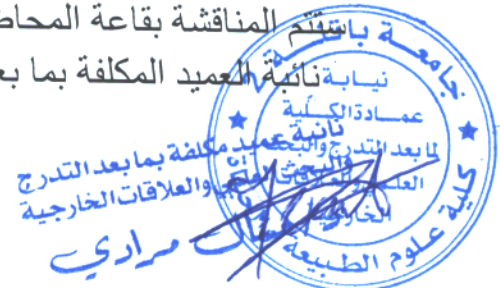 ستتم المناقشة بقاعة المحاض
نائبة العميد المكلفة بما بع
جامعة باتنـــة
نيـــابـة
عمـــادة الكـــلـية
لما بعد التدرج والبحث
العلمي
الخارجية
كلية علوم الطبيعة
نائبة عميد مكلفة بما بعد التدرج
والبحث العلمي والعلاقات الخارجية
مرادي